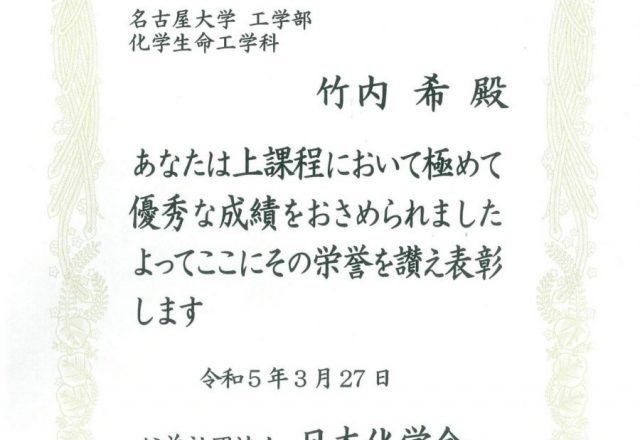 名古屋大学 工学部
化学生命工学科
竹内 希 殿
あなたは上課程において極めて
優秀な成績をおさめられました
よってここにその栄誉を讃え表彰
します
令和5年3月27日
日本化学会